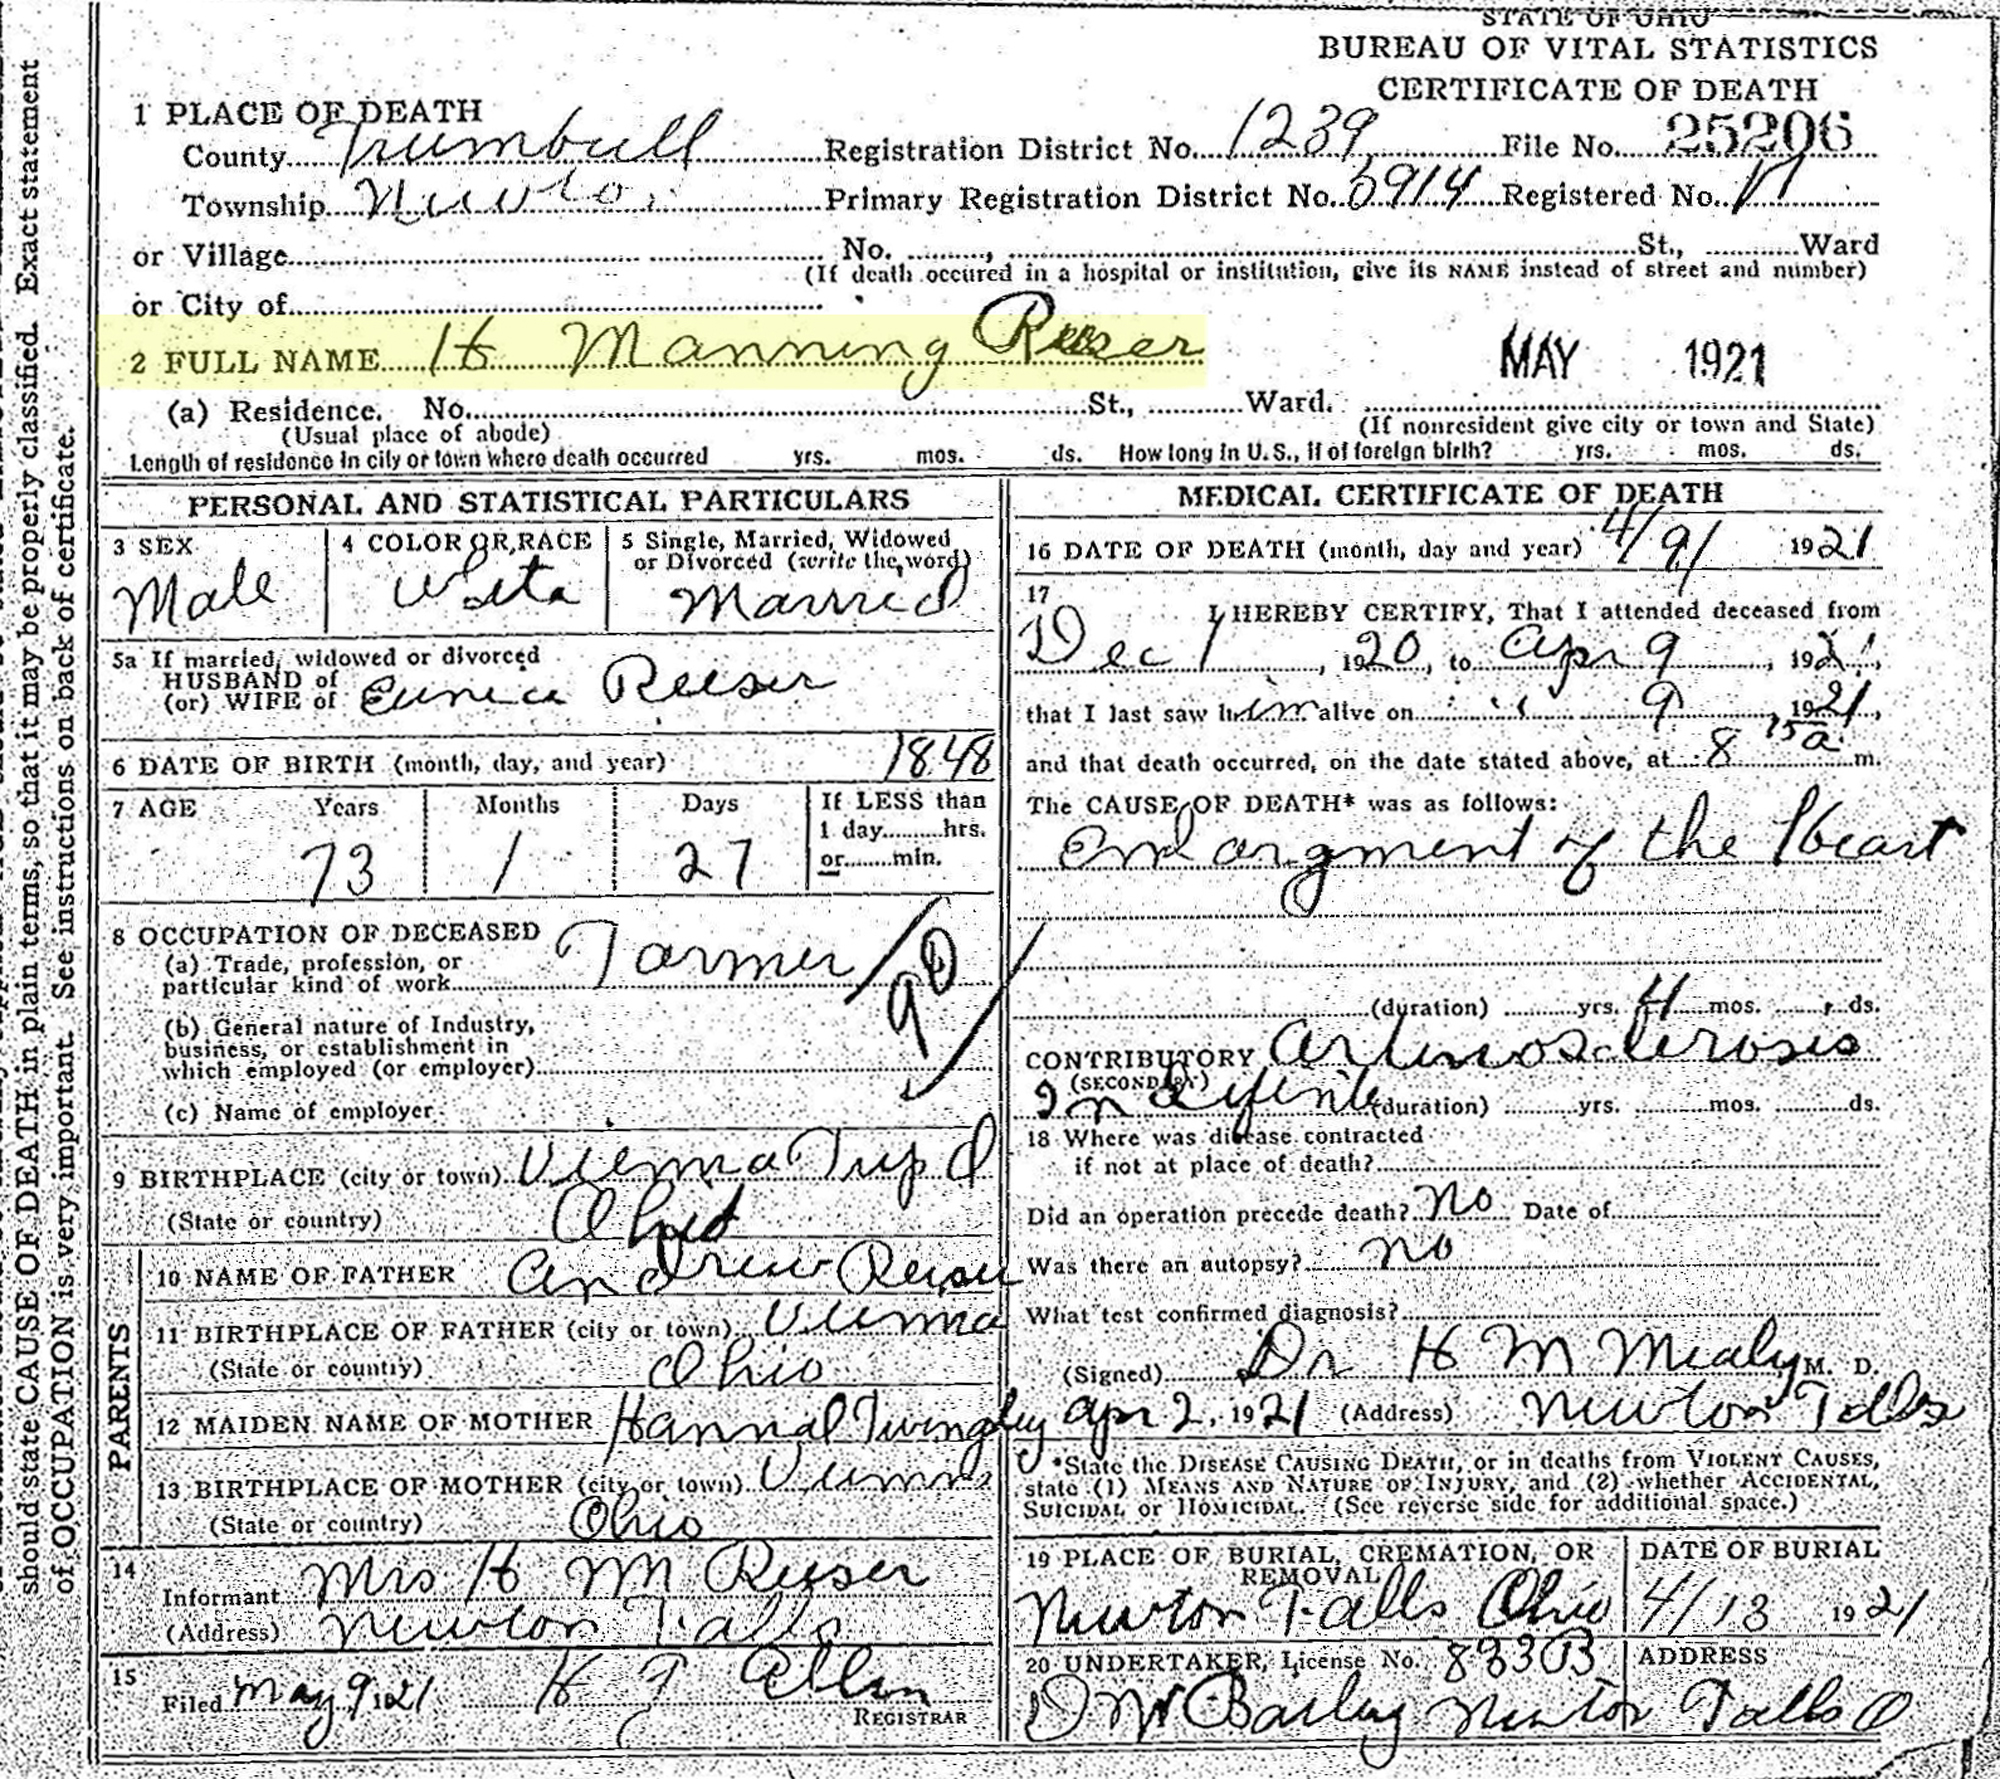 STATE OF OHIO
BUREAU OF VITAL STATISTICS
CERTIFICATE OF DEATH
1 PLACE OF DEATH
County Trumbull Registration District No. 1239 File No. 25206
Township Newton Primary Registration District No. 6914 Registered No.
or Village No. , St., Ward
(If death occured in a hospital or institution, give its NAME instead of street and number)
or City of
2 FULL NAME H Manning Reeser
MAY 1921
(a) Residence. No. St., Ward.
(Usual place of abode) (If nonresident give city or town and State)
Length of residence in city or town where death occurred yrs. mos. ds. How long in U. S., if of foreign birth? yrs. mos. ds.
PERSONAL AND STATISTICAL PARTICULARS
3 SEX
Male
4 COLOR OR RACE
White
5 Single, Married, Widowed
or Divorced (write the word)
Married
5a If married, widowed or divorced
HUSBAND of
(or) WIFE of Eunice Reeser
6 DATE OF BIRTH (month, day, and year) 1848
7 AGE Years Months Days If LESS than
1 day hrs.
or min.
73 1 27
8 OCCUPATION OF DECEASED
(a) Trade, profession, or
particular kind of work Farmer
90
(b) General nature of Industry,
business, or establishment in
which employed (or employer)
(c) Name of employer
9 BIRTHPLACE (city or town) Vienna Twp O
(State or country) Ohio
PARENTS
10 NAME OF FATHER Andrew Reeser
11 BIRTHPLACE OF FATHER (city or town) Vienna
(State or country) Ohio
12 MAIDEN NAME OF MOTHER Hannah
13 BIRTHPLACE OF MOTHER (city or town) Vienna
(State or country) Ohio
14
Informant Mrs H M Reeser
(Address) Newton Falls
15
Filed May 9 1921 H F Allen
REGISTRAR
MEDICAL CERTIFICATE OF DEATH
16 DATE OF DEATH (month, day and year) 4/9/ 1921
17
I HEREBY CERTIFY, That I attended deceased from
Dec 1, 1920, to Apr 9, 1921,
that I last saw him alive on " 9, 1921,
and that death occurred, on the date stated above, at 8 15 a m.
The CAUSE OF DEATH* was as follows:
Enlargment of the Heart
(duration) yrs. 4 mos. ds.
CONTRIBUTORY Arteriosclerosis
(SECONDARY)
Indefinite (duration) yrs. mos. ds.
18 Where was disease contracted
if not at place of death?
Did an operation precede death? No Date of
Was there an autopsy? no
What test confirmed diagnosis?
(Signed) Dr H M Mealy M. D.
Apr 2, 1921 (Address) Newton Falls
*State the DISEASE CAUSING DEATH, or in deaths from VIOLENT CAUSES,
state (1) MEANS AND NATURE OF INJURY, and (2) whether ACCIDENTAL,
SUICIDAL or HOMICIDAL. (See reverse side for additional space.)
19 PLACE OF BURIAL, CREMATION, OR
REMOVAL
Newton Falls Ohio
DATE OF BURIAL
4/13 1921
20 UNDERTAKER, License No. 833B
ADDRESS
Bailey Newton Falls O
should state CAUSE OF DEATH in plain terms, so that it may be properly classified. Exact statement
of OCCUPATION is very important. See instructions on back of certificate.